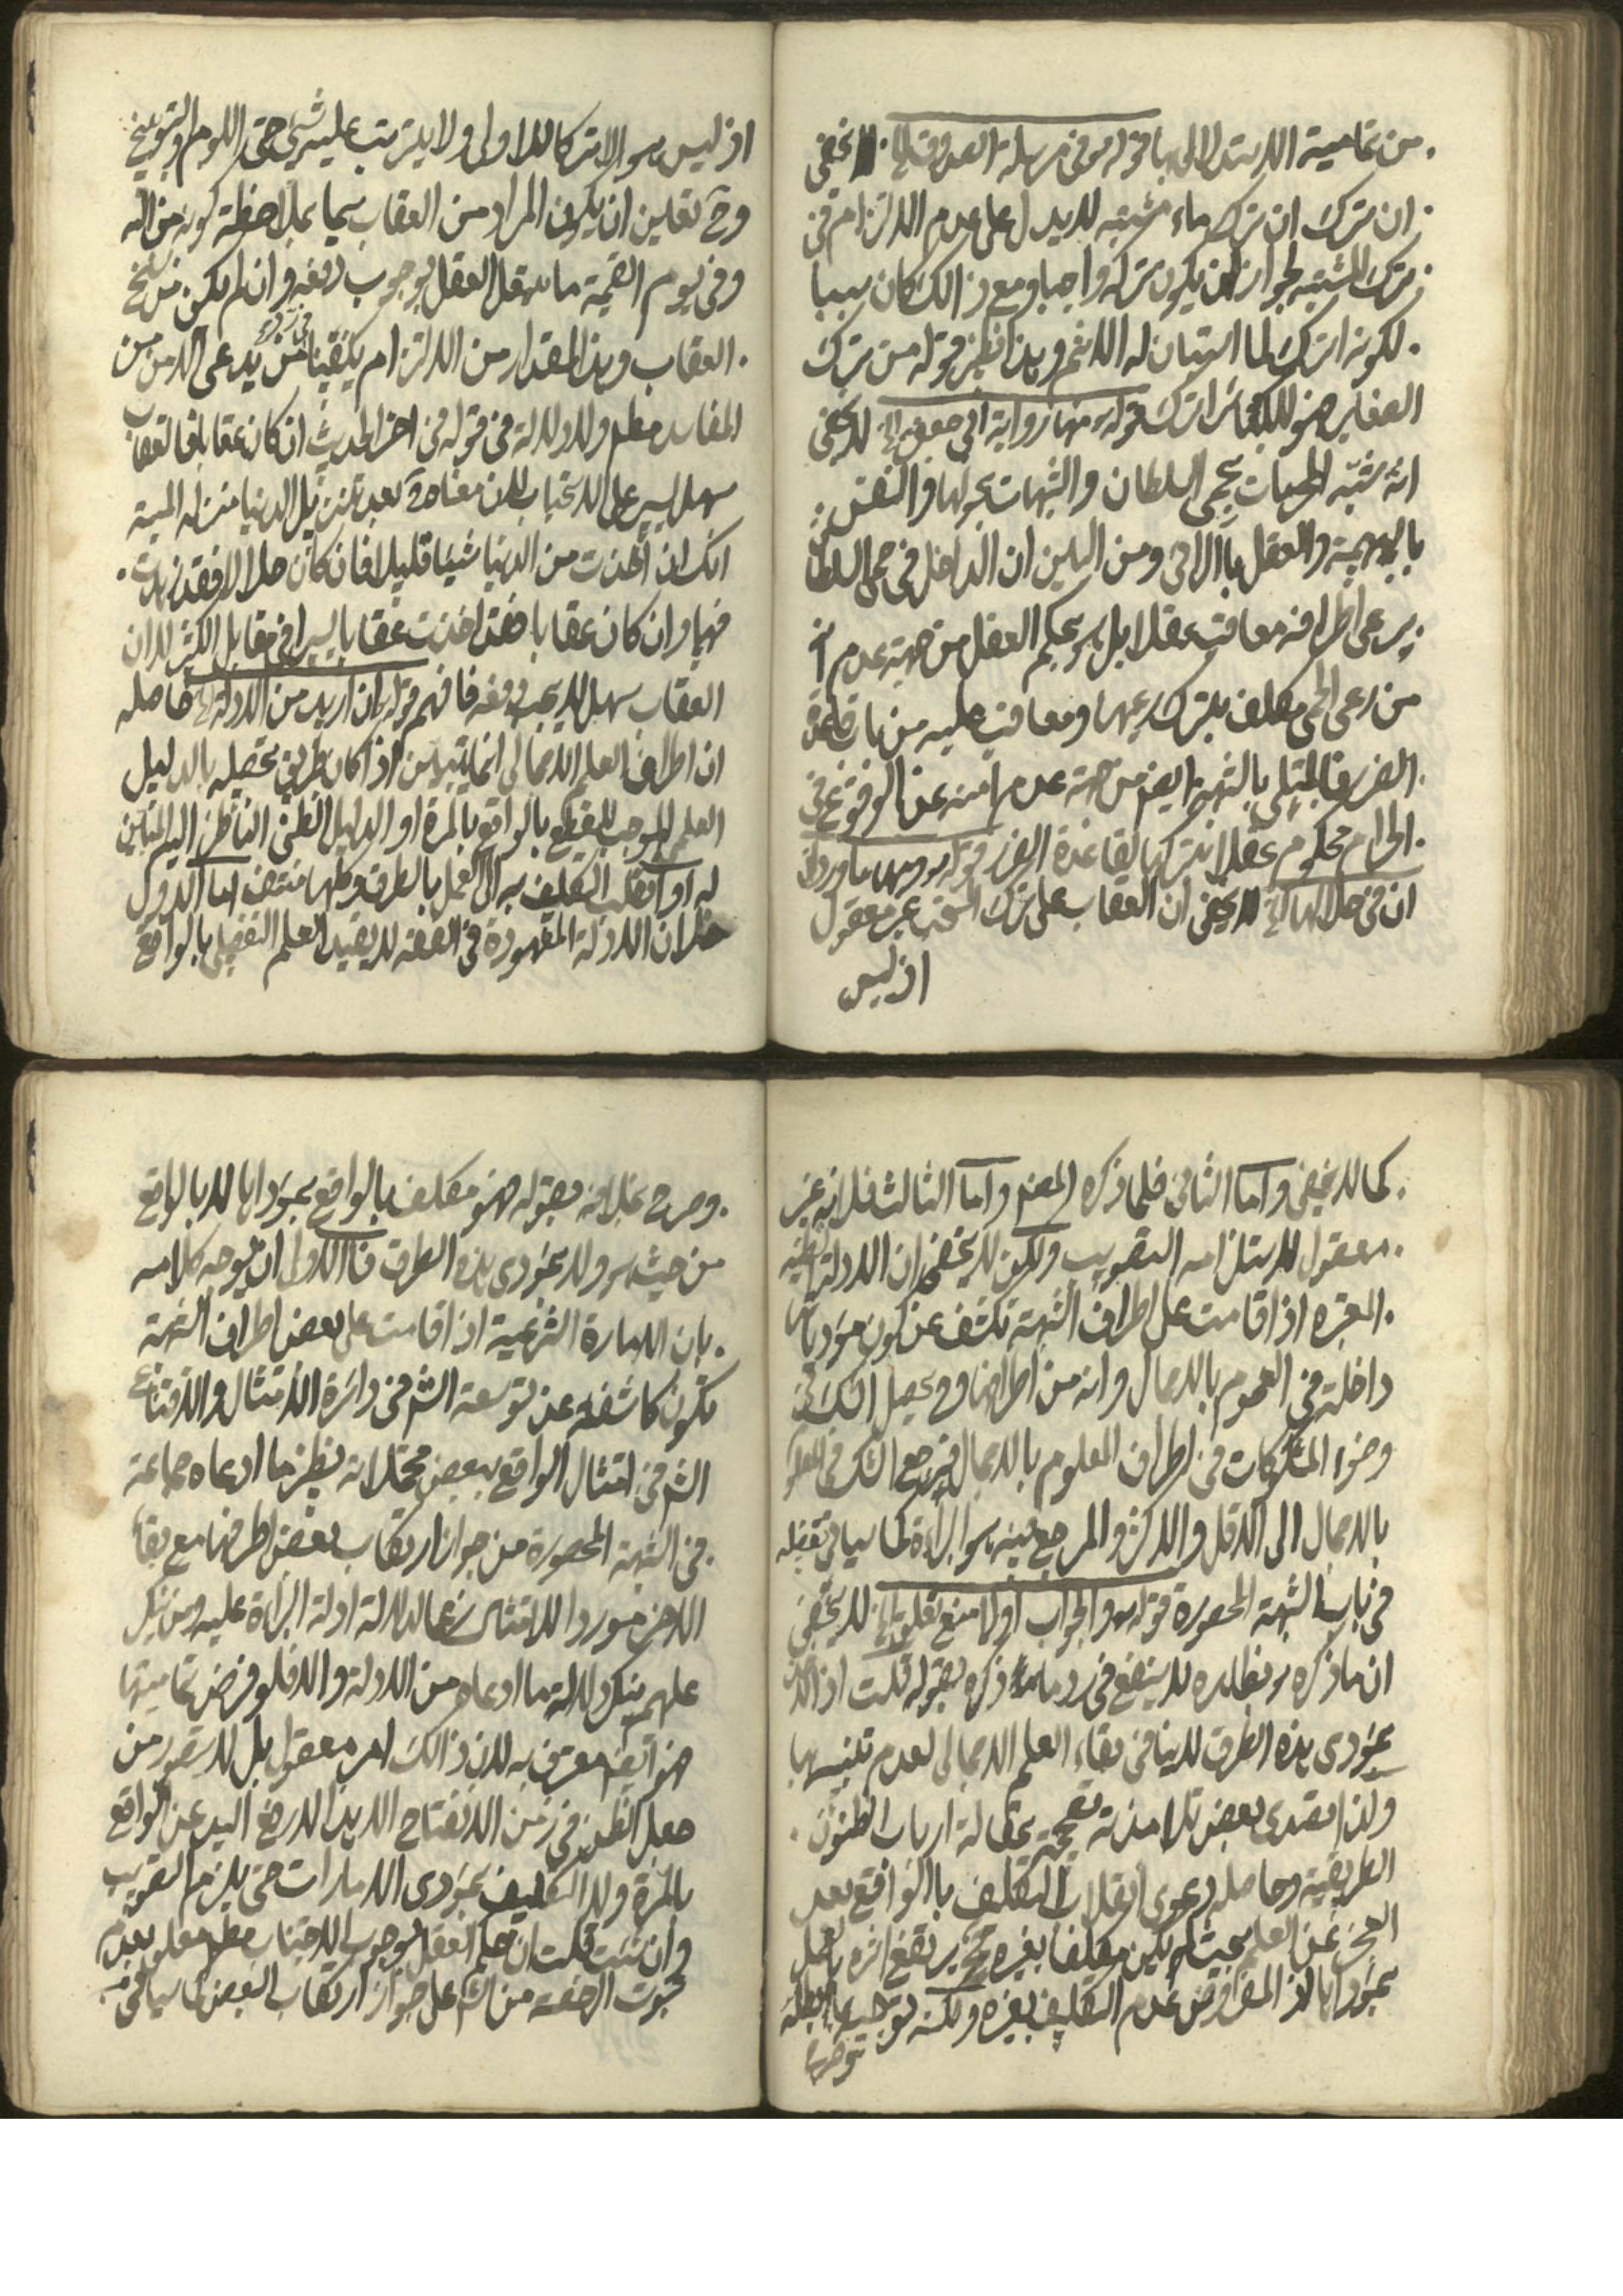 من تمامية الاستدلال بها قوله وفي مرسلة الصدوق الخ لا يخفى
ان ترك ان ترك ماء مشتبه لا يدل على عدم الالتزام في
ترك المشتبه لجواز ان يكون تركه واجبا ومع ذالك كان سببا
لكونه اترك لما استبان له الاثم وهذا نظير قوله من ترك
الصغاير فهو للكبائر اترك قوله منها رواية ابي جعفر الخ لا يخفى
انه شبّه المحرمات بحمى السلطان والشبهات بحولها والنفس
بالبهيمة والعقل بالراعى ومن البين ان الداخل في حمى السلطان
يرعى اطرافه معاقب عقلا بل هو بحكم العقل من جهة عدم
من رعى الحمى مكلف بترك رعيها ومعاقب عليه من باب قاعدة
الضرر فالمبتلى بالشبهة ايضا من جهة عدم امنه عن الوقوع في
الحرام محكوم عقلا بتركها لقاعدة الضرر قوله ومنها ما ورد من
ان في حلالها الخ لا يخفى ان العقاب على ترك المستحب غير معقول
اذ ليس
اذ ليس هو الا ترك الاولى ولا يترتب عليه شيء حتى اللوم والتوبيخ
وح تعلين ان يكون المراد من العقاب سيما بملاحظة كونه من اله
وفي يوم القيمة ما يستقل العقل بوجوب دفعه وان لم يكن من سنخ
العقاب وهذا المقدار من الالتزام يكفينا في يدعى الامن من
المفاسد مطم ولا دلالة في قوله في اخر الحديث ان كان عقابا فالعقاب
سهل يسير على الاستحباب لان معناه ح بعد تنزيل الدنيا منزلة الميتة
انك ان اخذت من الدنيا شيئا قليلا فان كان حلالا فقد زهدت
فيها وان كان عقابا فقد اخذت عقابا يسيرا في مقابل الكثير لا ان
العقاب سهل لا يجب دفعه فافهم قوله ان اريد من الادلة الخ حاصله
ان اطراف العلم الاجمالى انما يتبين اذا كان طريق تحصيله بالدليل
العلم الموجب للقطع بالواقع بالمرة او الدليل الظنى الناظر اليه المتباين
له او انقلب التكليف به الى العمل بالطرق وكلها منتف اما الاول
فلان الادلة المعهودة في الفقه لا يفيد العلم التفصيلي بالواقع
كما لا يخفى واما الثانى فلما ذكره المصنف واما الثالث فلانه غير
معقول لاستلزامه التصويب ولكن لا يخفى ان الادلة الظنية
المعتبره اذا قامت على اطراف الشبهة تكشف عن كون مؤدياتها
داخلة في العموم بالاجمال وانه من اطرافها وح يحصل الشك في
وضوء المشكوكات في اطراف المعلوم بالاجمال فيرجع الشك في المعلوم
بالاجمال الى الاقل والاكثر والمرجع فيه هو البراءة كما سياتى تفصيله
في باب الشبهة المحصورة قوله والجواب اولا منع تعلق الخ لا يخفى
ان ما ذكره بطلده لا ينفع في رد ما ذكره بقوله قلت اذ الاخذ
بمؤدى هذه الطرق لا ينافى بقاء العلم الاجمالى لعدم تلبسها
ولذا تصدى بعض تلامذته بمقالة ارباب الظنون
الطريقية وحاصله دعوى انقلاب التكليف بالواقع بعد
العجز عن العلم بحيث لم يكن مكلفا بغيره ح يرتفع اثره بالعمل
بمؤداها لان المفروض عدم التكليف بغيره ولكنه
وصرح بخلافه بقوله فهو مكلف بالواقع بمؤداها لا بالواقع
من حيث هو ولا بمؤدى هذه الطرق فالاولى ان يوجه كلامه
بان الامارة الشرعية اذا قامت على بعض اطراف الشبهة
تكون كاشفة عن توسعة الشم في دائرة الامتثال والاقتناع
الشم في امتثال الواقع ببعض محتملاته نظير ما ادعاه جماعة
في الشبهة المحصورة من جواز ارتكاب بعض اطرافها مع بقاء
الاخر موردا للامتثال شرعا لدلالة ادلة البراءة عليه ومن ينكر
عليهم ينكر دلالة ما ادعاه من الادلة والا فلو فرض تماميتها
فهو ايضا معترف به لان ذالك امر معقول بل لا يتصور من
جعل الظن في زمن الانفتاح الا هذا لا رفع اليد عن الواقع
بالمرة ولا التكليف بمؤدى الامارات حتى يلزم التصويب
وان شئت قلت ان حكم العقل بوجوب الاجتناب مطم معلق بعدم
ثبوت الرخصة من الشم على جواز ارتكاب البعض كما سياتى